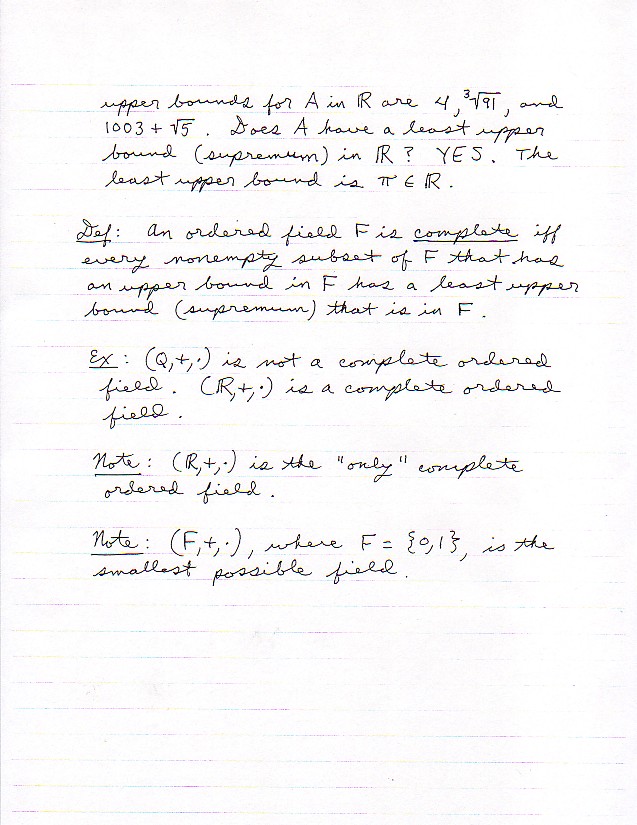 upper bounds for A in ℝ are 4, ∛91, and
1003 + √5. Does A have a least upper
bound (supremum) in ℝ? YES. The
least upper bound is π ∈ ℝ.
Def: An ordered field F is complete iff
every nonempty subset of F that has
an upper bound in F has a least upper
bound (supremum) that is in F.
Ex: (Q,+,·) is not a complete ordered
field. (ℝ,+,·) is a complete ordered
field.
Note: (ℝ,+,·) is the "only" complete
ordered field.
Note: (F,+,·), where F = {0,1}, is the
smallest possible field.